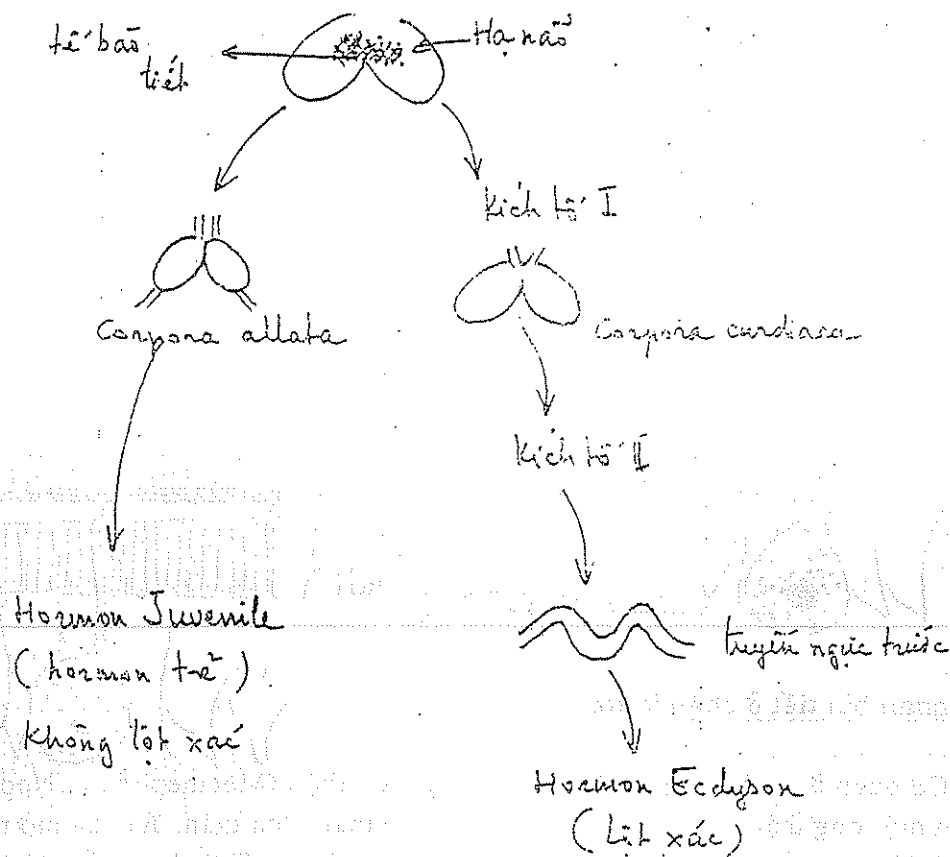 tế bào
tiết
Hạ não
Kích tố I
Corpora allata
Corpora cardiaca
Kích tố II
Hormon Juvenile
(hormon trẻ)
Không lột xác
tuyến ngực trước
Hormon Ecdyson
(Lột xác)